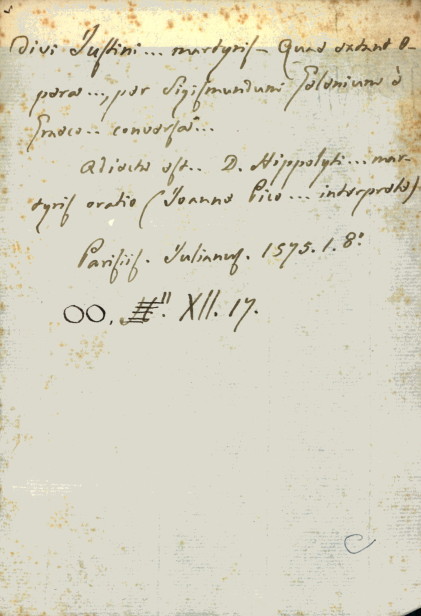 Divi Iustini... martyris - Quae extant O-
pera..., per Sigismundum Gelenium è
Graeco... conversa...
Adiecta est.. D. Hippolyti... mar-
tyris oratio (Ioanne Pico... interprete)
Parisiis. Julianus. 1575. 1. 8º
OO. XII. 17.